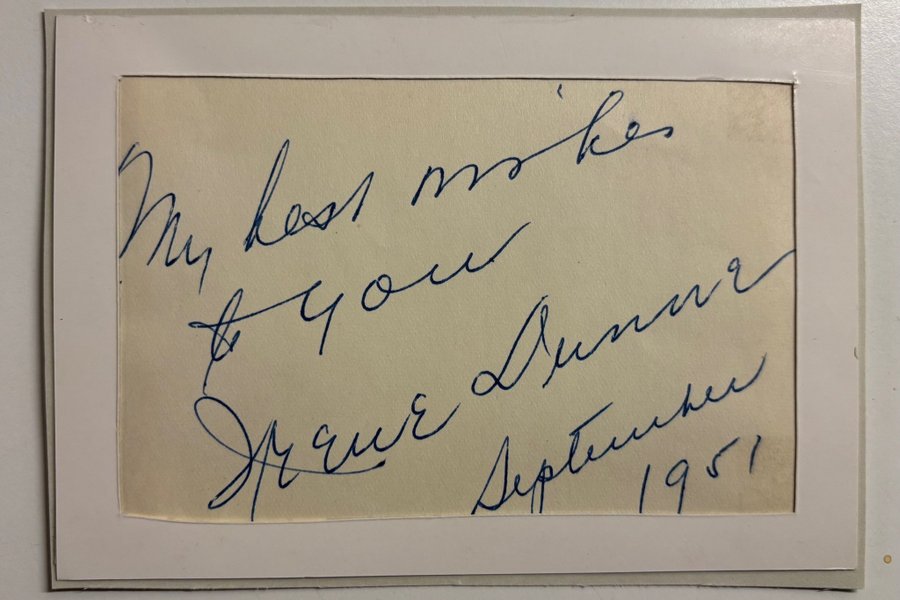 My best wishes
to you
Irene Dunne
September
1951